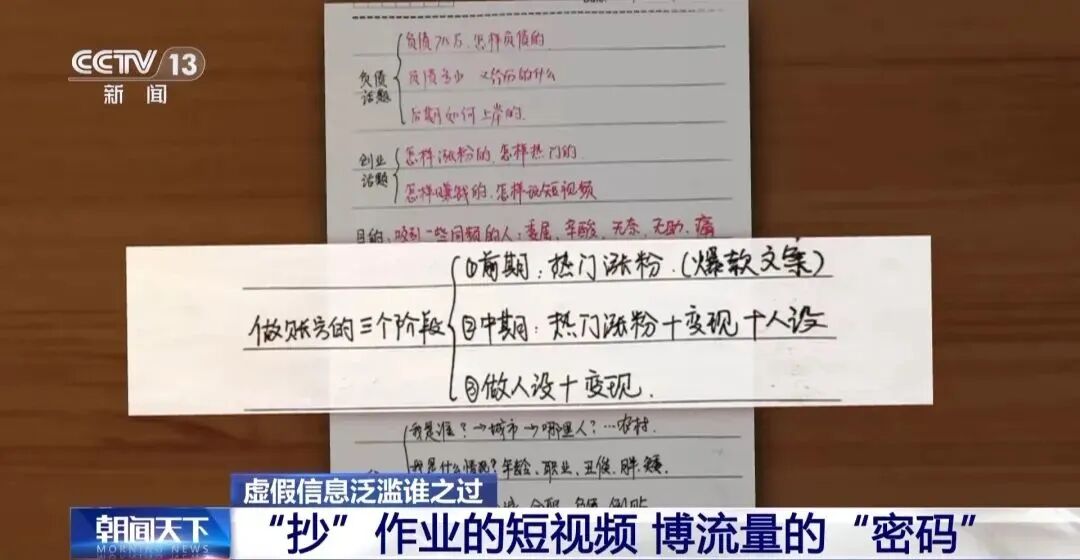 CCTV 13
新闻
负债话题
怎样负债的
负债多少
后期如何上岸的
创业话题
怎样涨粉的、怎样热门的
怎样赚钱的、怎样玩短视频
目的：吸引一些同频的人：委屈、辛酸、无奈、无助、痛
做账号的三个阶段
①前期：热门涨粉.(爆款文案)
②中期：热门涨粉+变现+人设
③做人设+变现.
我是谁？→城市→哪里人？…农村.
我是什么情况？年龄、职业、丑俊、胖、矮.
虚假信息泛滥谁之过
朝闻天下
MORNING NEWS
“抄”作业的短视频 博流量的“密码”